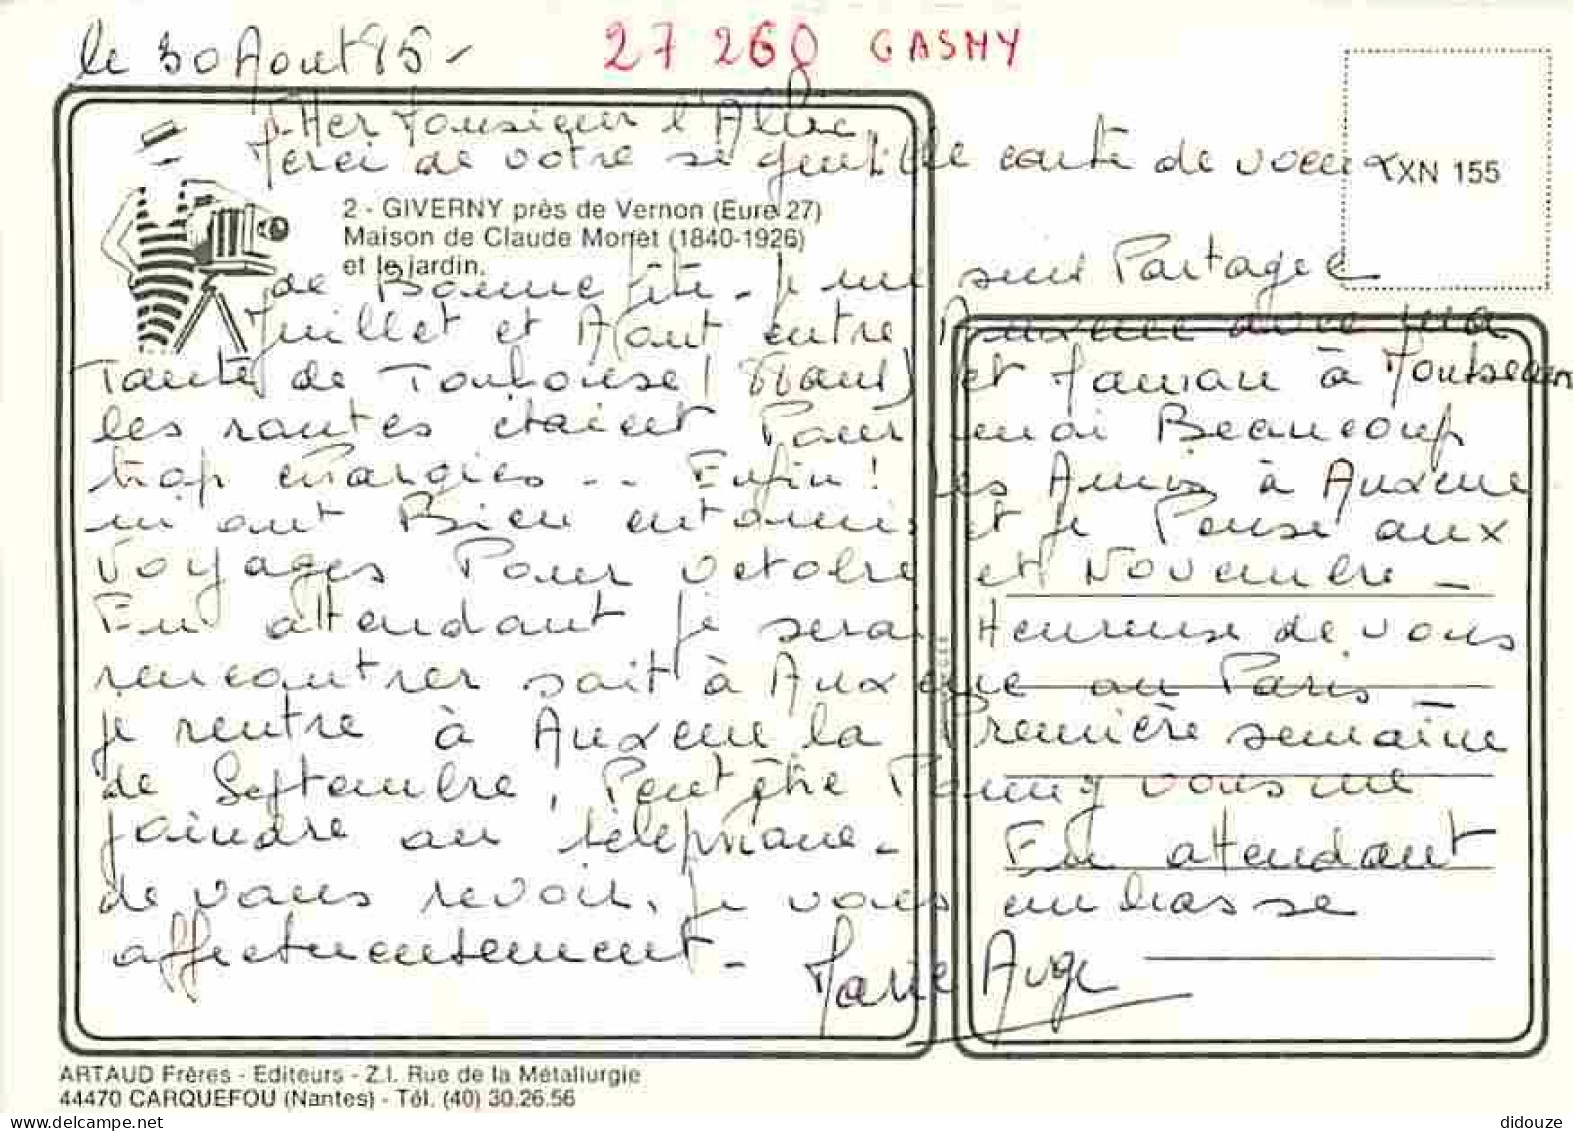 le 30 Aout 85 - 27 260 GASNY
CHer Monsieur l'Abbé,
Merci de votre si gentille carte de voeux
XN 155
2 - GIVERNY près de Vernon (Eure 27)
Maison de Claude Monet (1840-1926)
et le jardin.
de Bonne fête. Je me suis Partagée
Juillet et Aout entre Auxerre avec ma
Tante de Toulouse et Maman à
les routes étaient Pour moi Beaucoup
trop chargées .. Enfin! les Amis à Auxerre
m'ont Bien entourée et je Pense aux
Voyages Pour octobre et Novembre -
En attendant je serai Heureuse de vous
rencontrer soit à Auxerre ou Paris -
je rentre à Auxerre la Première semaine
de Septembre, Peut être Pourrez vous me
joindre au téléphone - En attendant
de vous revoir, je vous embrasse
affectueusement -
Marie Ange
ARTAUD Frères - Editeurs - Z.I. Rue de la Métallurgie
44470 CARQUEFOU (Nantes) - Tél. (40) 30.26.56
didouze